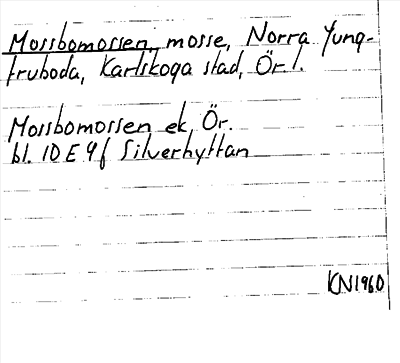 Mossbomossen, mosse, Norra Jung-
fruboda, Karlskoga stad, Ör. l.
Mossbomossen ek, Ör.
bl. 10 E 9f Silverhyttan
KN1960